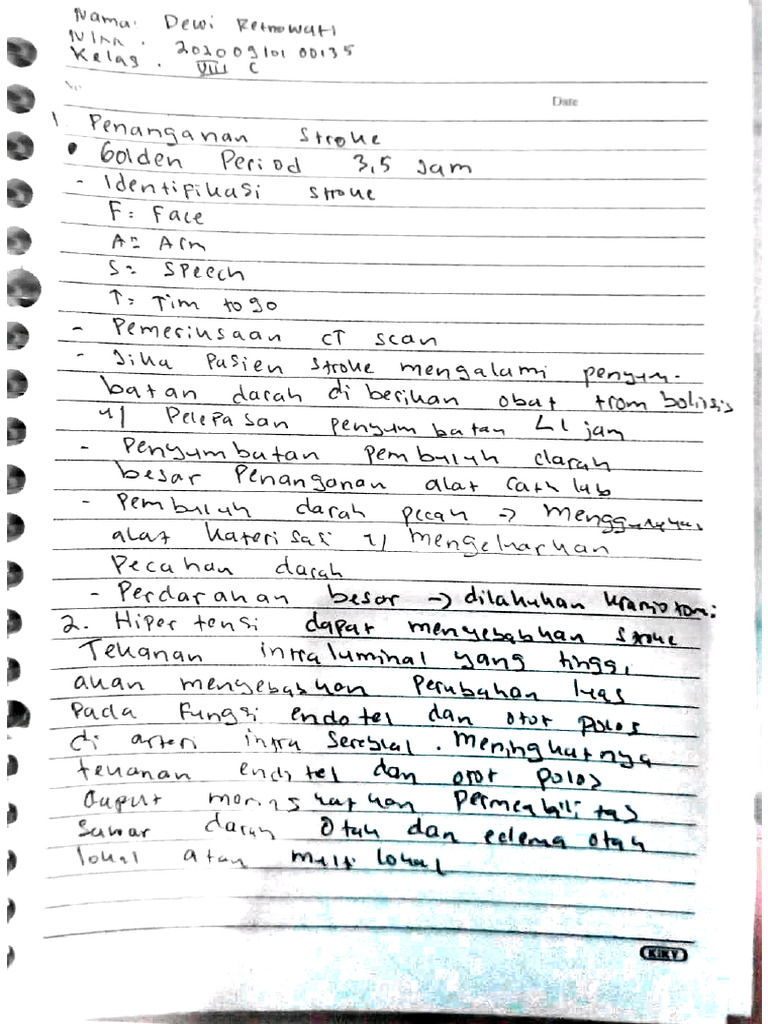 Nama: Dewi Retnowati
NIM . 202009101 00135
Kelas . VIII C
No
Date
1. Penanganan Stroke
• Golden Period 3,5 Jam
- Identifikasi stroke
F= Face
A= Arm
S= Speech
T= Tim to go
- Pemeriksaan CT scan
- Jika Pasien Stroke mengalami penyum-
batan darah di berikan obat trom bolisis
u/ Pelepasan penyum batan 4 jam
- Penyumbatan Pembuluh darah
besar Penanganan alat Cath lab
- Pembuluh darah pecah → menggunakan
alat katerisasi u/ mengeluarkan
Pecahan darah
- Perdarahan besar → dilakukan kraniotomi
2. Hiper tensi dapat menyebabkan stroke
Tekanan intraluminal yang tinggi
akan menyebabkan Perubahan luas
Pada Fungsi endotel dan otot polos
di arteri intra Serebral . Meningkatnya
tekanan endotel dan otot polos
Dapat meningkatkan Permeabilitas
Sawar darah Otak dan edema otak
lokal atau multi lokal
KIKY